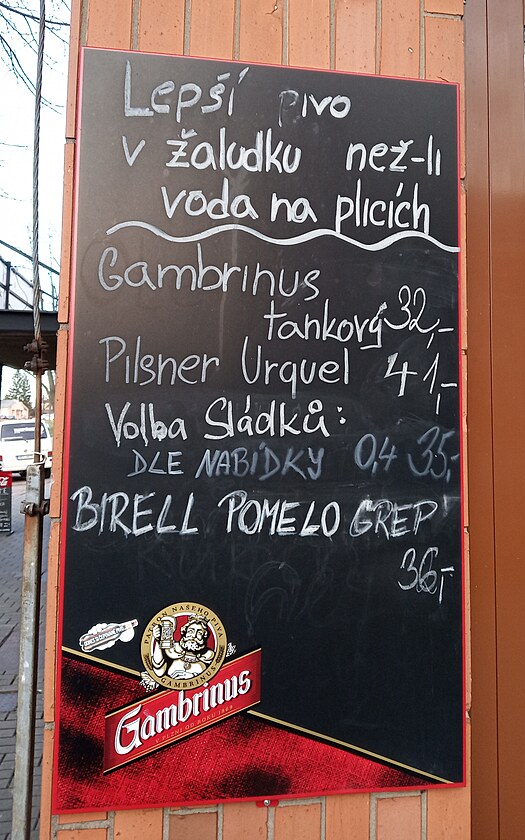 Lepší pivo
v žaludku než-li
voda na plicích
Gambrinus
tankový 32,-
Pilsner Urquel 41,-
Volba Sládků:
DLE NABÍDKY 0,4 35,-
BIRELL POMELO GREP
36,-
PATRON NAŠEHO PIVA
GAMBRINUS
Gambrinus
V PLZNI OD ROKU 1869